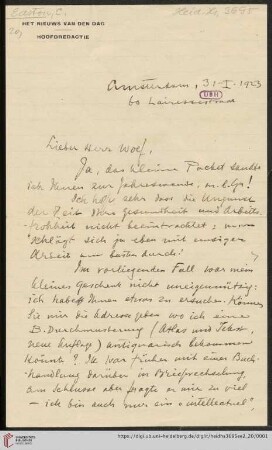 Heid. Hs. 3695
HET NIEUWS VAN DEN DAG
HOOFDREDACTIE
Amsterdam, 31-I. 1923
60 Lairessestraat
UBH
Lieber Herr Wolf.
Ja, das kleine Packet sandte
ich Ihnen zur Jahreswende, m. l. Gr!
Ich hoffe sehr dass die Ungunst
der Zeit Ihre Gesundheit und Arbeits-
frohheit nicht beeinträchtet; man
schlägt sich ja eben mit emsiger
Arbeit am besten durch!
Im vorliegenden Fall war mein
kleines Geschenk nicht uneigennützig:
ich habe Ihnen etwas zu ersuchen. Können
Sie mir die Adresse geben wo ich eine
B. Durchmusterung (Atlas und Text,
neue Auflage) antiquarisch bekommen
könnte? Ich war früher mit einer Buch-
handlung darüber in Briefwechslung,
am Schlusse aber fragte er mir zu viel
— ich bin auch nur ein "intellectuel"
https://digi.ub.uni-heidelberg.de/diglit/heidhs3695